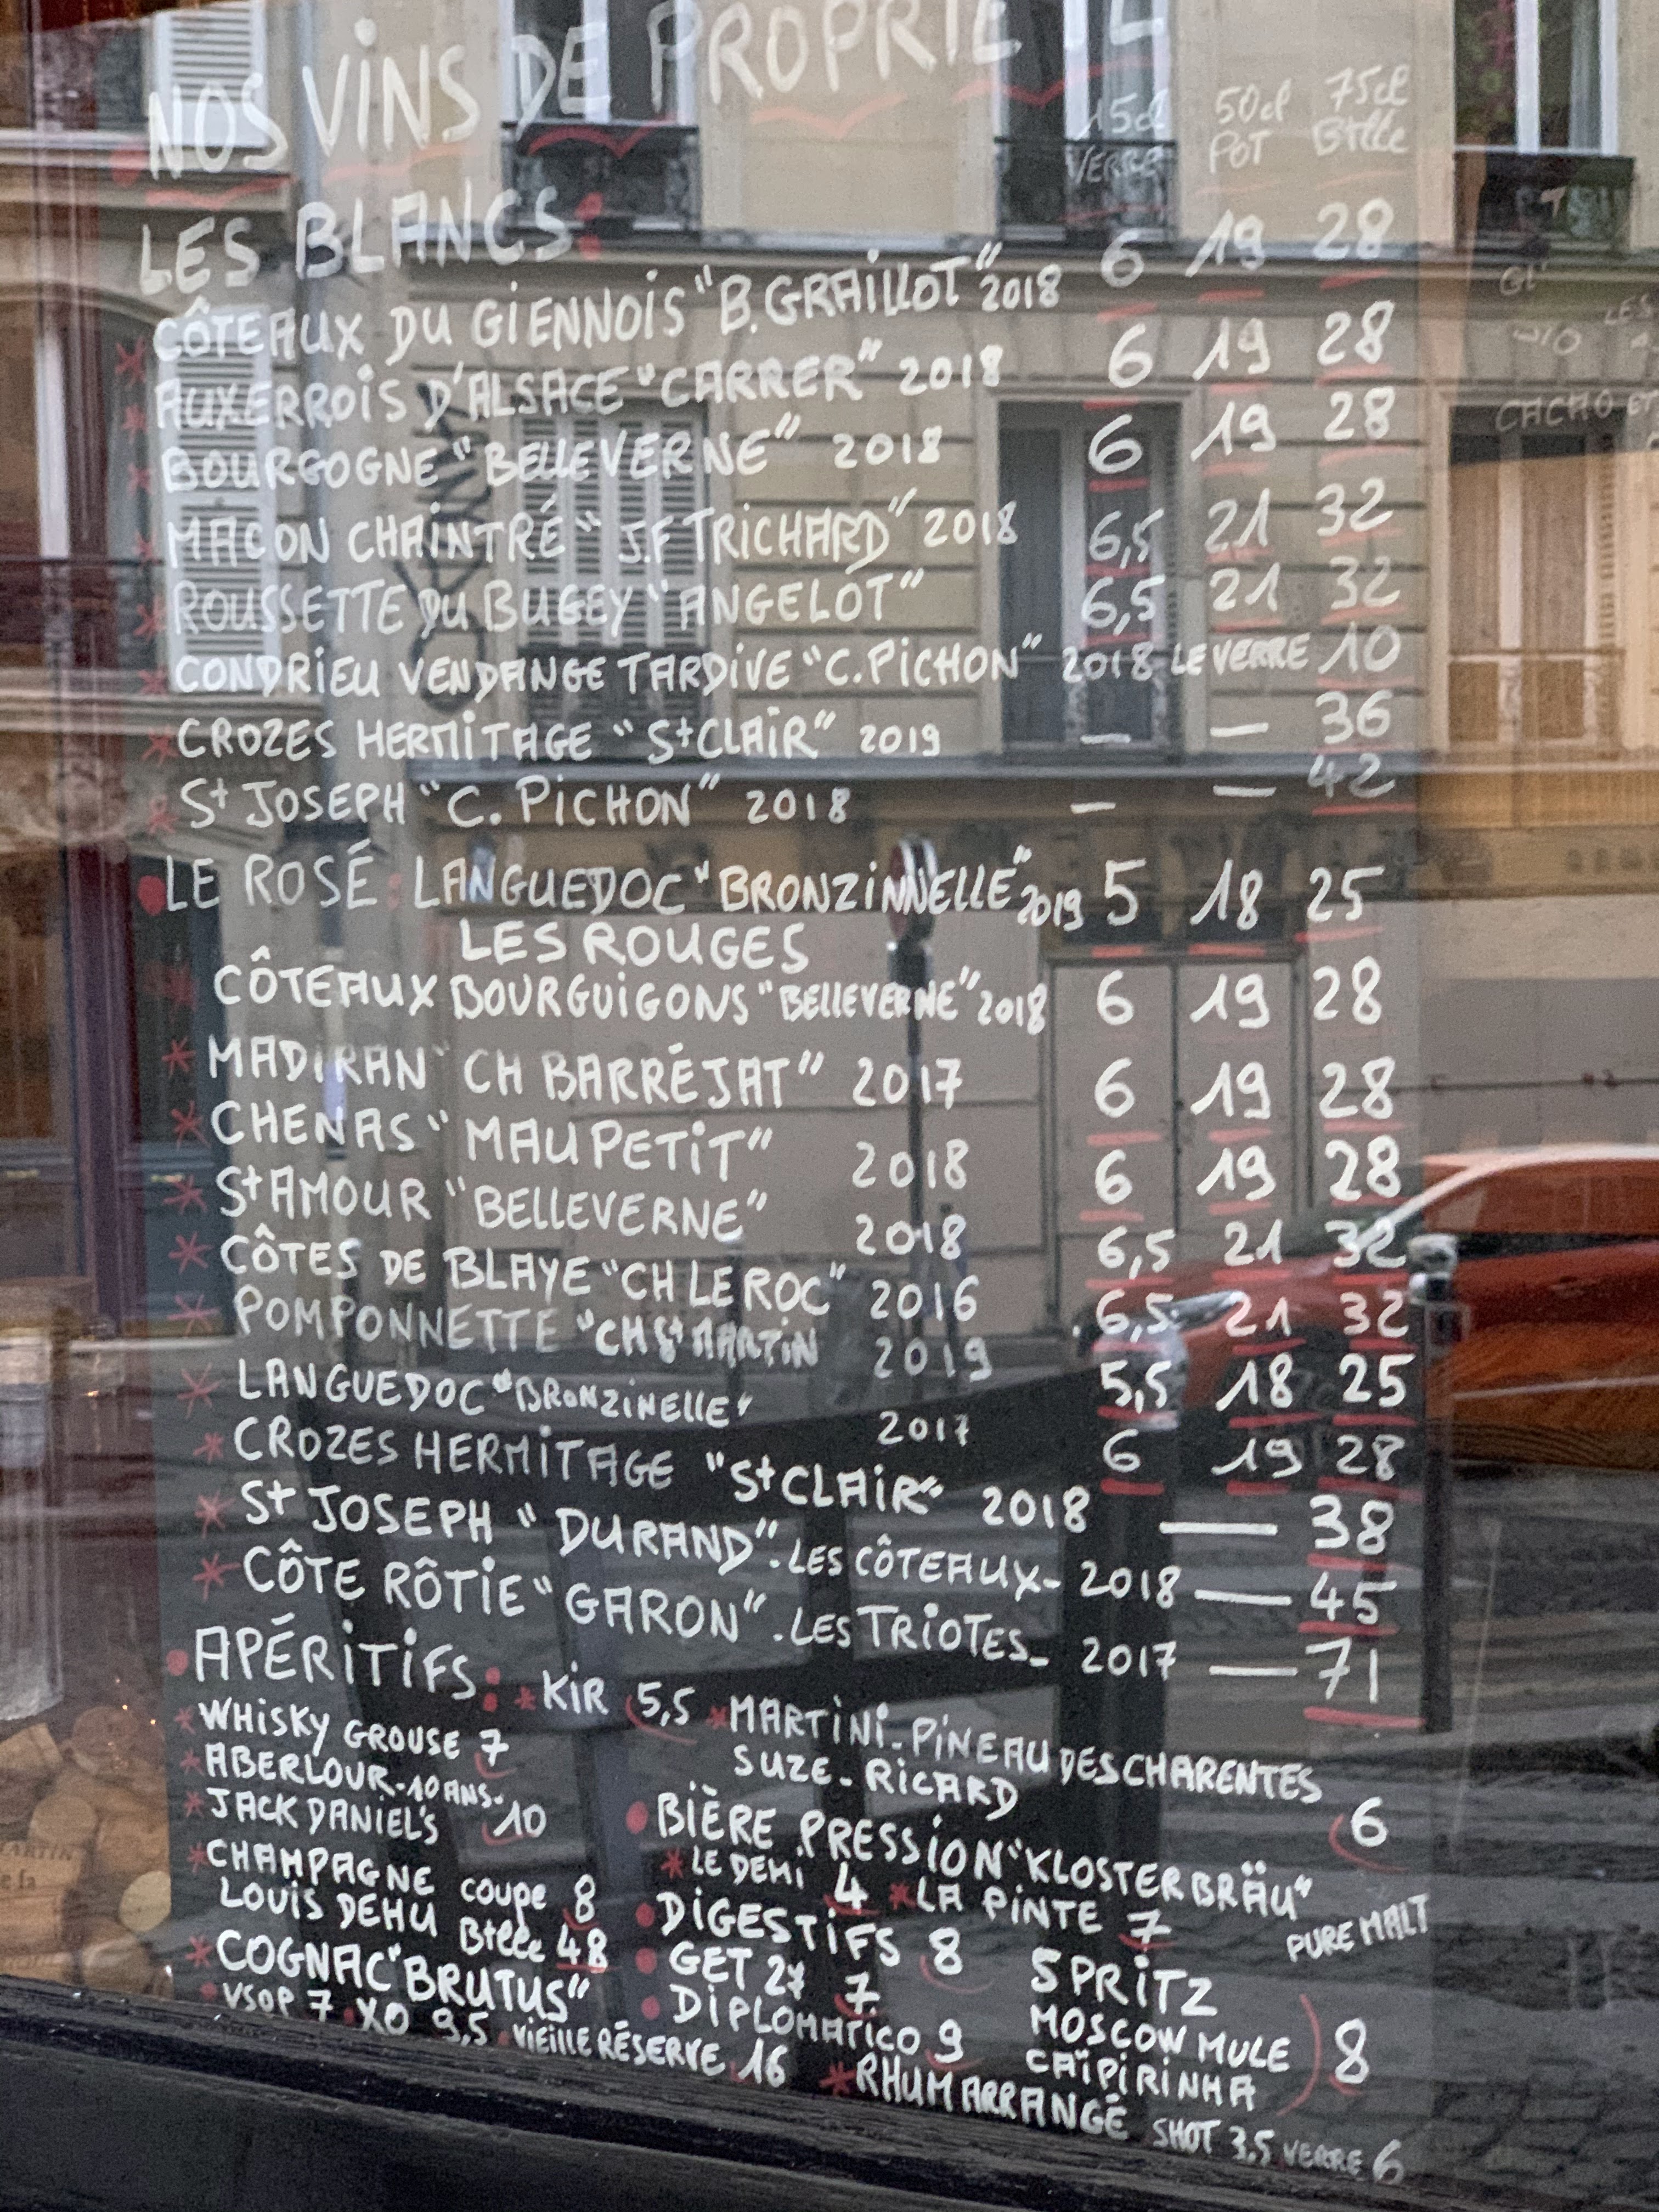 NOS VINS DE PROPRIÉTÉ
15cl VERRE 50cl POT 75cl Btlle
LES BLANCS:
* CÔTEAUX DU GIENNOIS "B.GRAILLOT" 2018 6 19 28
* AUXERROIS D'ALSACE "CARRER" 2018 6 19 28
* BOURGOGNE "BELLEVERNE" 2018 6 19 28
* MACON CHAINTRÉ "J.F TRICHARD" 2018 6,5 21 32
* ROUSSETTE DU BUGEY "ANGELOT" 6,5 21 32
* CONDRIEU VENDANGE TARDIVE "C.PICHON" 2018 LE VERRE 10
* CROZES HERMITAGE "St CLAIR" 2019 — — 36
* St JOSEPH "C. PICHON" 2018 — — 42
LE ROSÉ: LANGUEDOC "BRONZINNELLE" 2019 5 18 25
LES ROUGES
CÔTEAUX BOURGUIGONS "BELLEVERNE" 2018 6 19 28
* MADIRAN "CH BARRÉJAT" 2017 6 19 28
* CHENAS "MAUPETIT" 2018 6 19 28
* St AMOUR "BELLEVERNE" 2018 6,5 21 32
* CÔTES DE BLAYE "CH LE ROC" 2016 6,5 21 32
* POMPONNETTE "CH St MARTIN 2019 5,5 18 25
* LANGUEDOC "BRONZINELLE" 2017 6 19 28
* CROZES HERMITAGE "St CLAIR" 2018 — 38
* St JOSEPH "DURAND". LES CÔTEAUX- 2018 — 45
* CÔTE RÔTIE "GARON". LES TRIOTES- 2017 — 71
APÉRITIFS: * KIR 5,5 * MARTINI-PINEAU DES CHARENTES
SUZE-RICARD 6
* WHISKY GROUSE 7
* ABERLOUR-10 ANS-
* JACK DANIEL'S 10
BIÈRE PRESSION "KLOSTERBRÄU"
PURE MALT
* LE DEMI 4 * LA PINTE 7
* CHAMPAGNE coupe 8
LOUIS DEHU Btlle 48
DIGESTIFS 8
GET 27 7
DIPLOMATICO 9
* COGNAC "BRUTUS"
VSOP 7 XO 9,5 VIEILLE RÉSERVE 16
SPRITZ
MOSCOW MULE
CAÏPIRINHA 8
* RHUM ARRANGÉ SHOT 3,5 VERRE 6
CACAHO ET